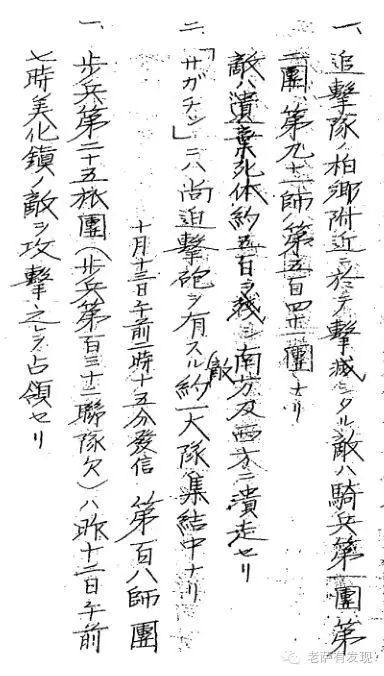 一、追擊隊ノ柏鄉附近ニ於テ擊滅シタル敵ハ騎兵第一團第
二團第九十二師ノ第五百四十二團ナリ
敵ハ遺棄死体約五百ヲ残シ南方及西方ニ潰走セリ
敵
二、「サガチン」ニハ尚迫擊砲ヲ有スル約一大隊集結中ナリ
十月十三日午前一時十五分發信 第百八師團
一、步兵第二十五旅團(步兵第百三十二聯隊欠)ハ昨十二日午前
七時美化鎮ノ敵ヲ攻擊之レヲ占領セリ
老萨有发现